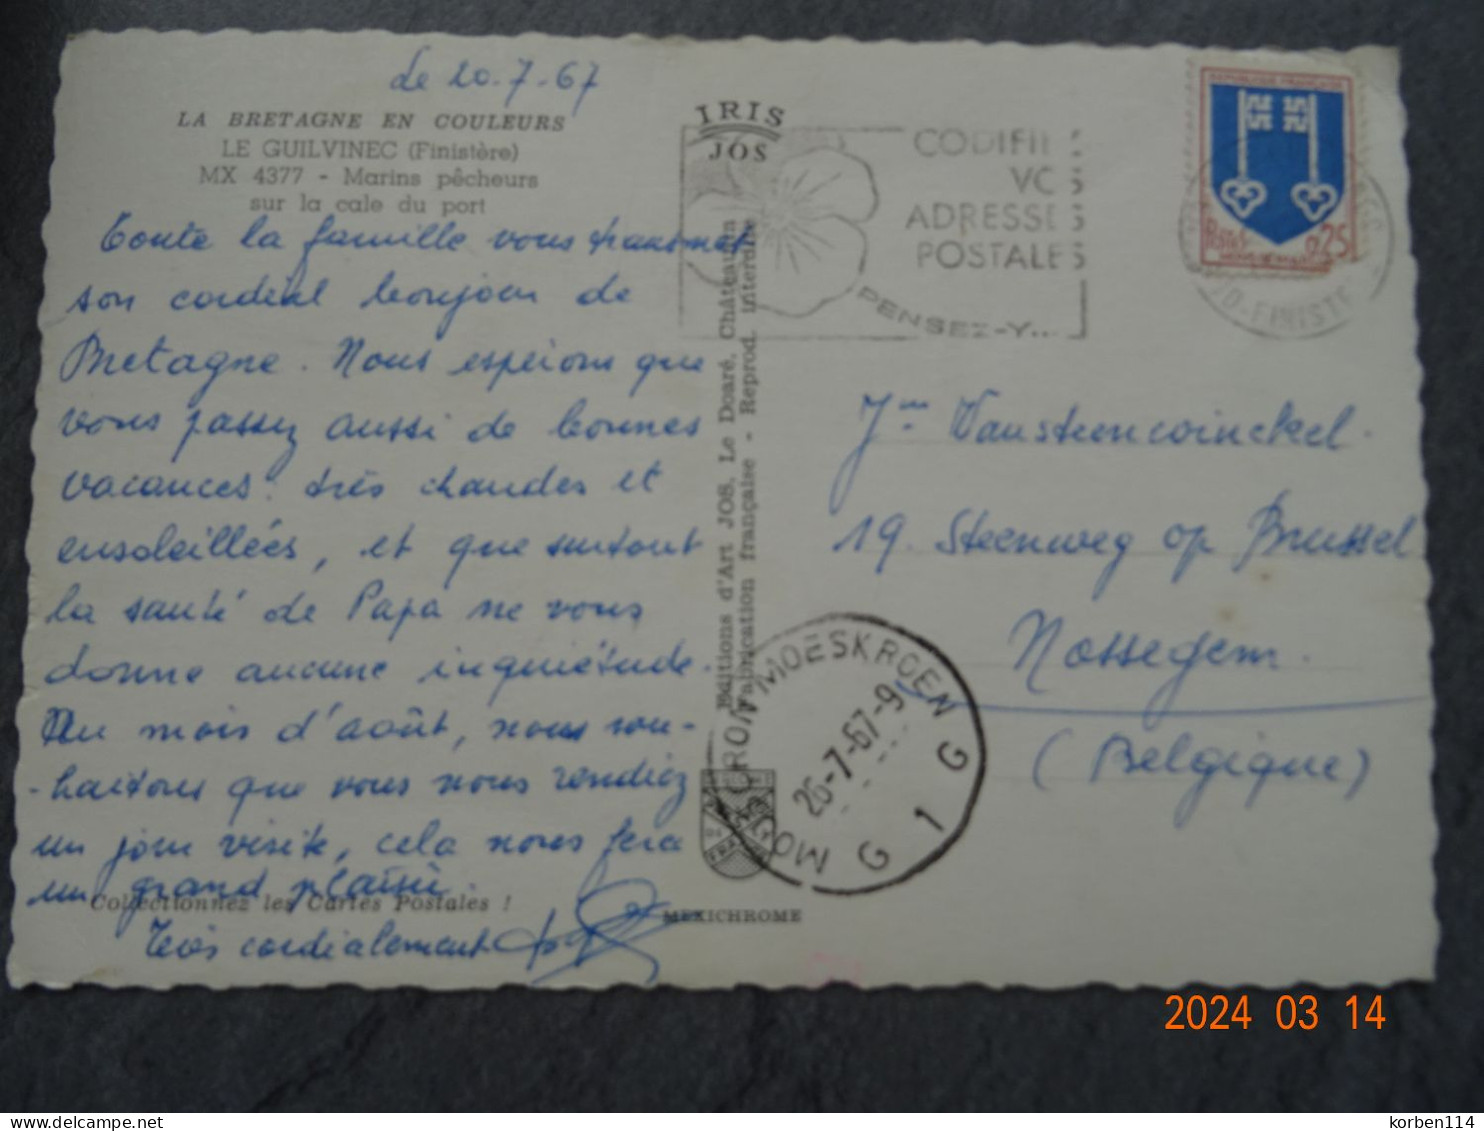 Le 20.7.67
LA BRETAGNE EN COULEURS
LE GUILVINEC (Finistère)
MX 4377 - Marins pêcheurs
sur la cale du port
Toute la famille vous transmet
son cordial bonjour de
Bretagne. Nous espérons que
vous passez aussi de bonnes
vacances très chaudes et
ensoleillées, et que surtout
la santé de Papa ne vous
donne aucune inquiétude.
Au mois d'août, nous sou-
-haitons que vous nous rendiez
un jour visite, cela nous fera
un grand plaisir.
Collectionnez les Cartes Postales !
Très cordialement
IRIS
JOS
Editions d'Art JOS, Le Doaré, Châteaulin
Fabrication française - Reprod. interdite
MEXICHROME
CODIFIEZ
VOS
ADRESSES
POSTALES
PENSEZ-Y...
REPUBLIQUE FRANÇAISE
0,25
-FINISTE
Vansteenwinckel
19. Steenweg op Brussel
Nossegem.
(Belgique)
MOESKROEN
26-7-67-9
G 1 G
2024 03 14
korben114